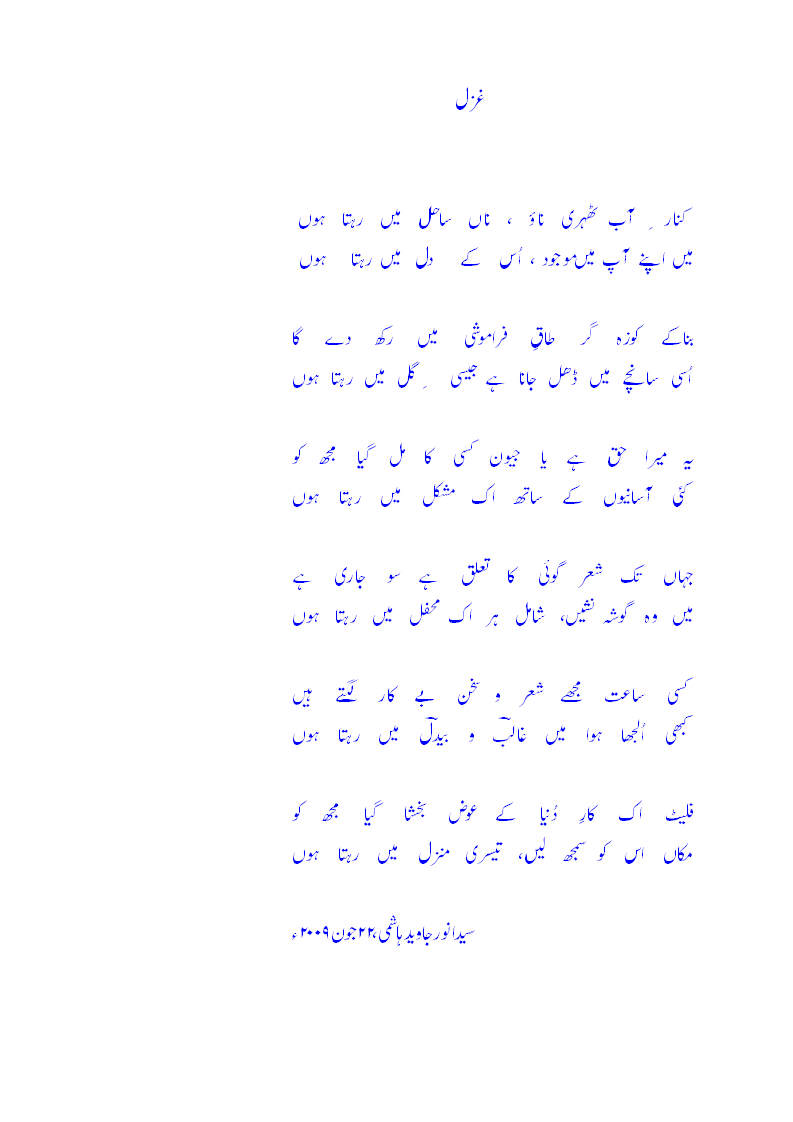 غزل
کنارِ آب ٹھہری ناؤ ، ناں ساحل میں رہتا ہوں
میں اپنے آپ میں موجود ، اُس کے دل میں رہتا ہوں
بناکے کوزہ گر طاقِ فراموشی میں رکھ دے گا
اُسی سانچے میں ڈھل جانا ہے جیسی گِل میں رہتا ہوں
یہ میرا حق ہے یا جیون کسی کا مل گیا مجھ کو
کئی آسانیوں کے ساتھ اک مشکل میں رہتا ہوں
جہاں تک شعر گوئی کا تعلق ہے سو جاری ہے
میں وہ گوشہ نشیں، شامل ہر اک محفل میں رہتا ہوں
کسی ساعت مجھے شعر و سخن بے کار لگتے ہیں
کبھی اُلجھا ہوا میں غالبؔ و بیدلؔ میں رہتا ہوں
فلیٹ اک کارِ دُنیا کے عوض بخشا گیا مجھ کو
مکاں اس کو سمجھ لیں، تیسری منزل میں رہتا ہوں
سیدانورجاویدہاشمی،۲۲جون۲۰۰۹ء